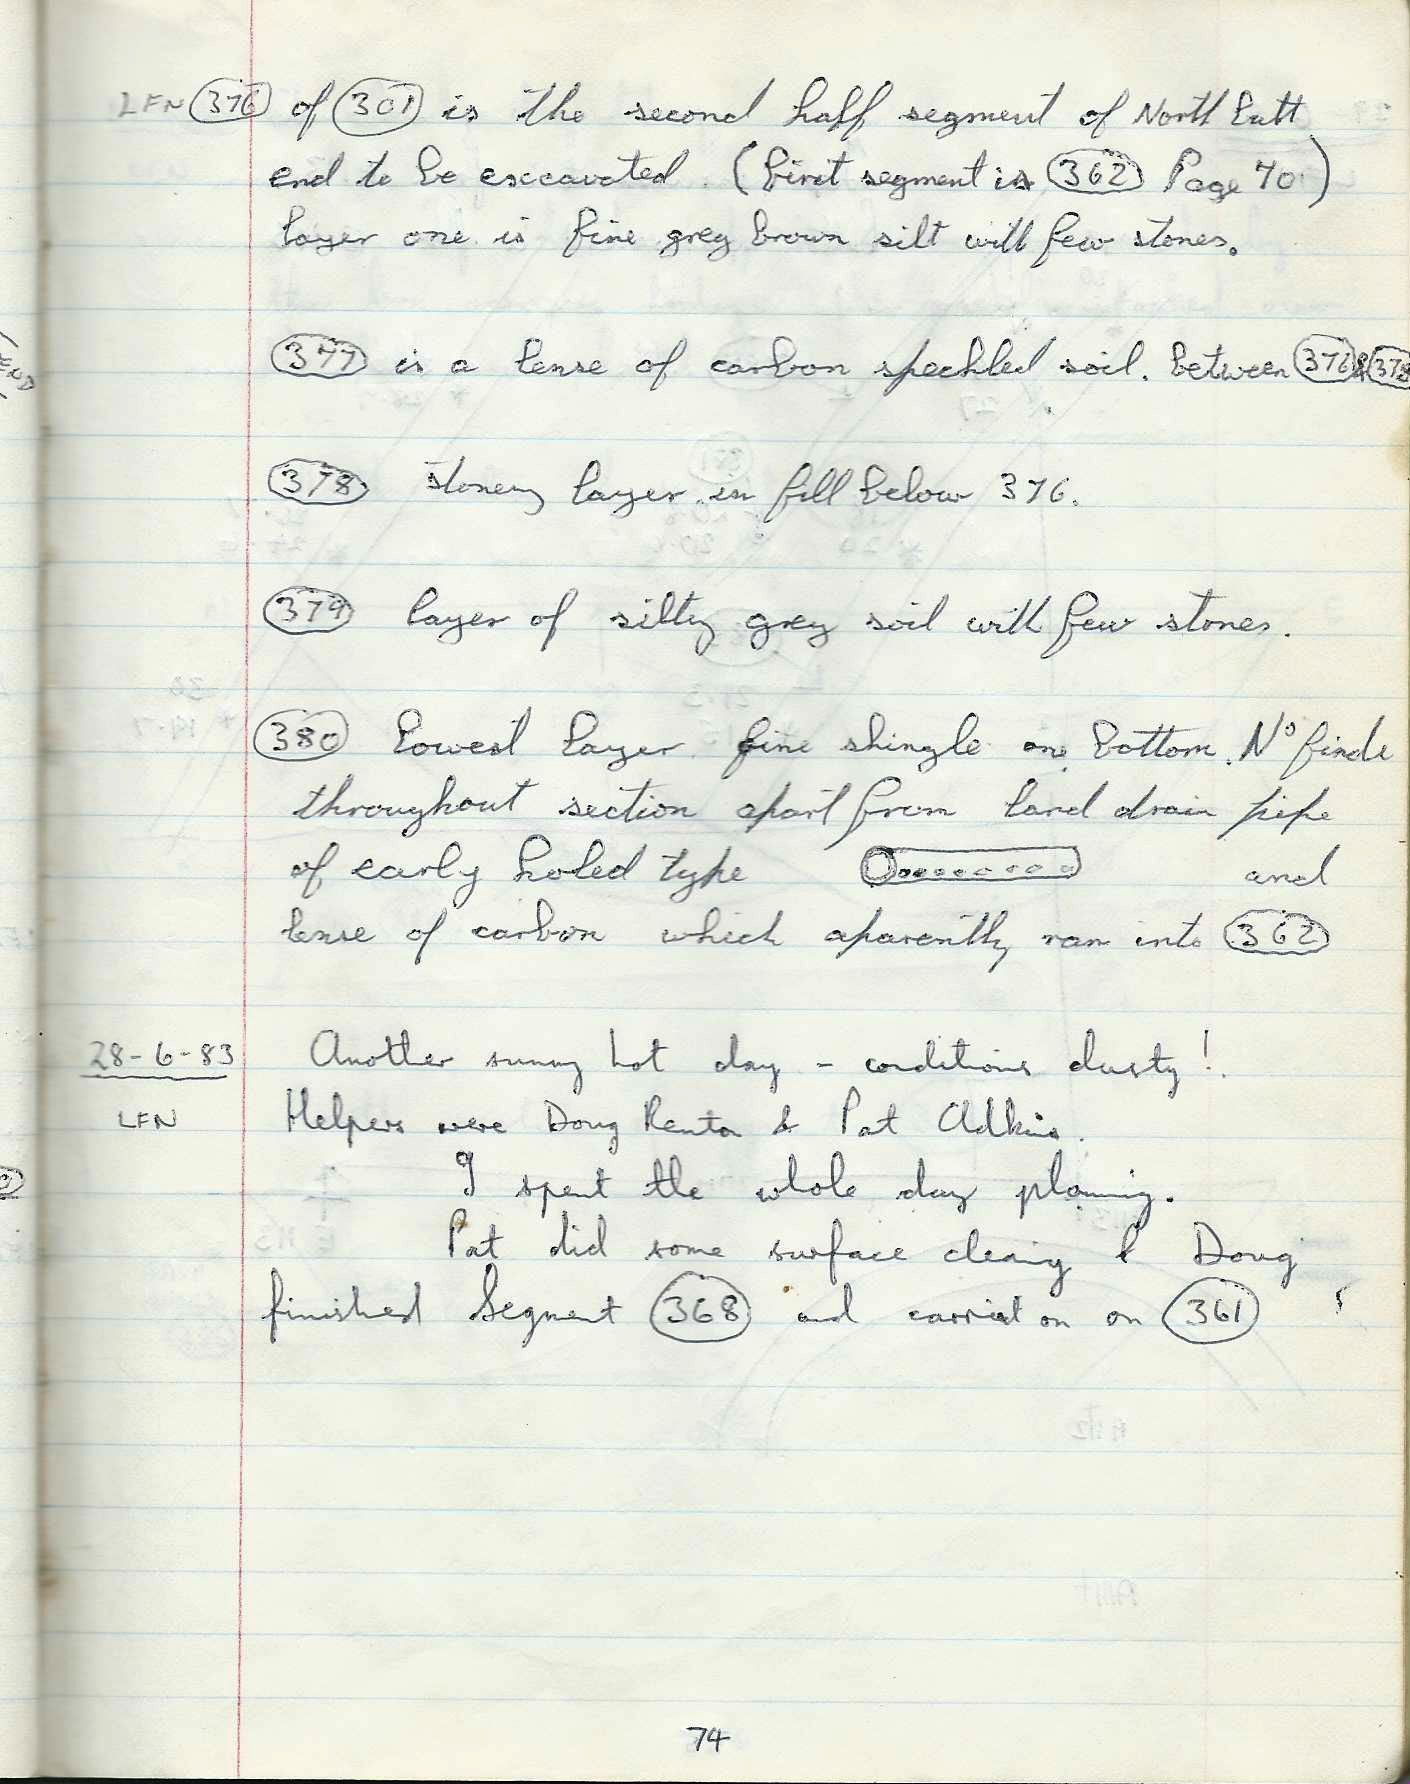 LFN 376 of 301 is the second half segment of North East
end to be excavated. (first segment is 362 Page 70)
layer one is fine grey brown silt with few stones.
377 is a lense of carbon speckled soil. between 376 & 378
378 stoney layer in fill below 376.
379 layer of silty grey soil with few stones.
380 Lowest layer fine shingle on bottom. No finds
throughout section apart from land drain pipe
of early holed type and
lense of carbon which aparently ran into 362
28-6-83 Another sunny hot day - conditions dusty!
LFN Helpers were Doug Renton & Pat Adkins.
I spent the whole day planning.
Pat did some surface cleaning & Doug
finished Segment 368 and carried on on 361
74